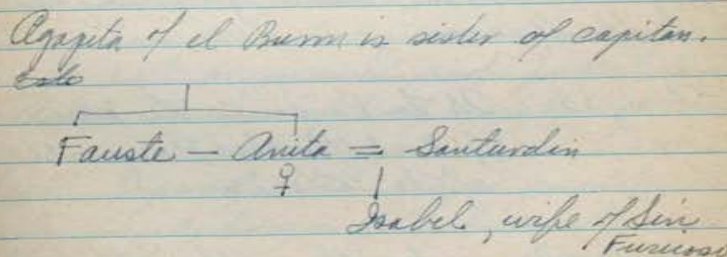 Agapita of el Burro is sister of capitan.
Fauste - Anita = Santurdin
♀
Isabel, wife of Sin
Furioso